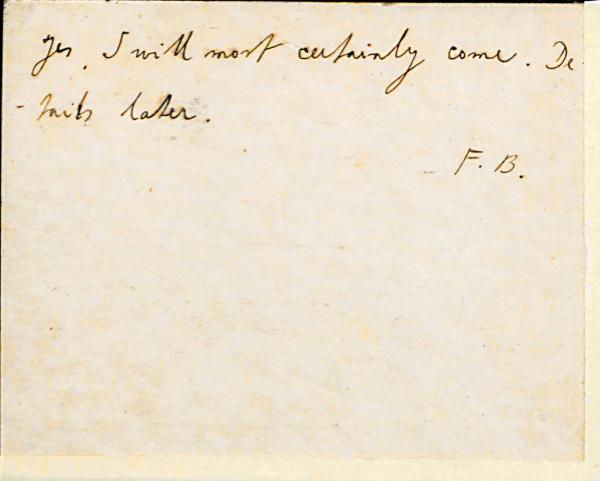 Yes, I will most certainly come. De-
-tails later.
F. B.